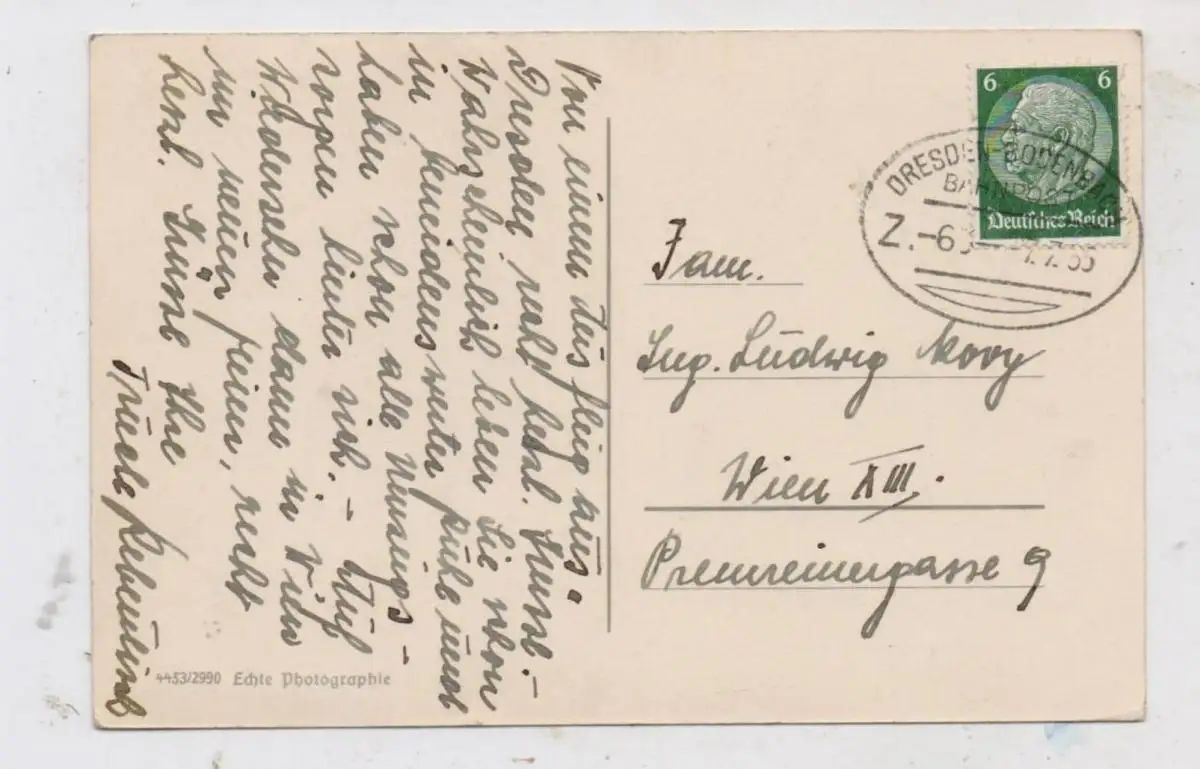 Von einem Ausflug aus
Dresden recht herzl. Grüsse. –
Wahrscheinlich leben Sie schon
in
haben schon alle Umzugs-
sorgen hinter sich. – Auf
Wiedersehn dann in Wien
im neuen Heim, recht
herzl. Grüsse Ihre
Trude
4453/2990 Echte Photographie
6 6
Deutsches Reich
DRESDEN-BODENBACH
BAHNPOST
Z.-6
Fam.
Ing. Ludwig
Wien XIII.
Premreinergasse 9